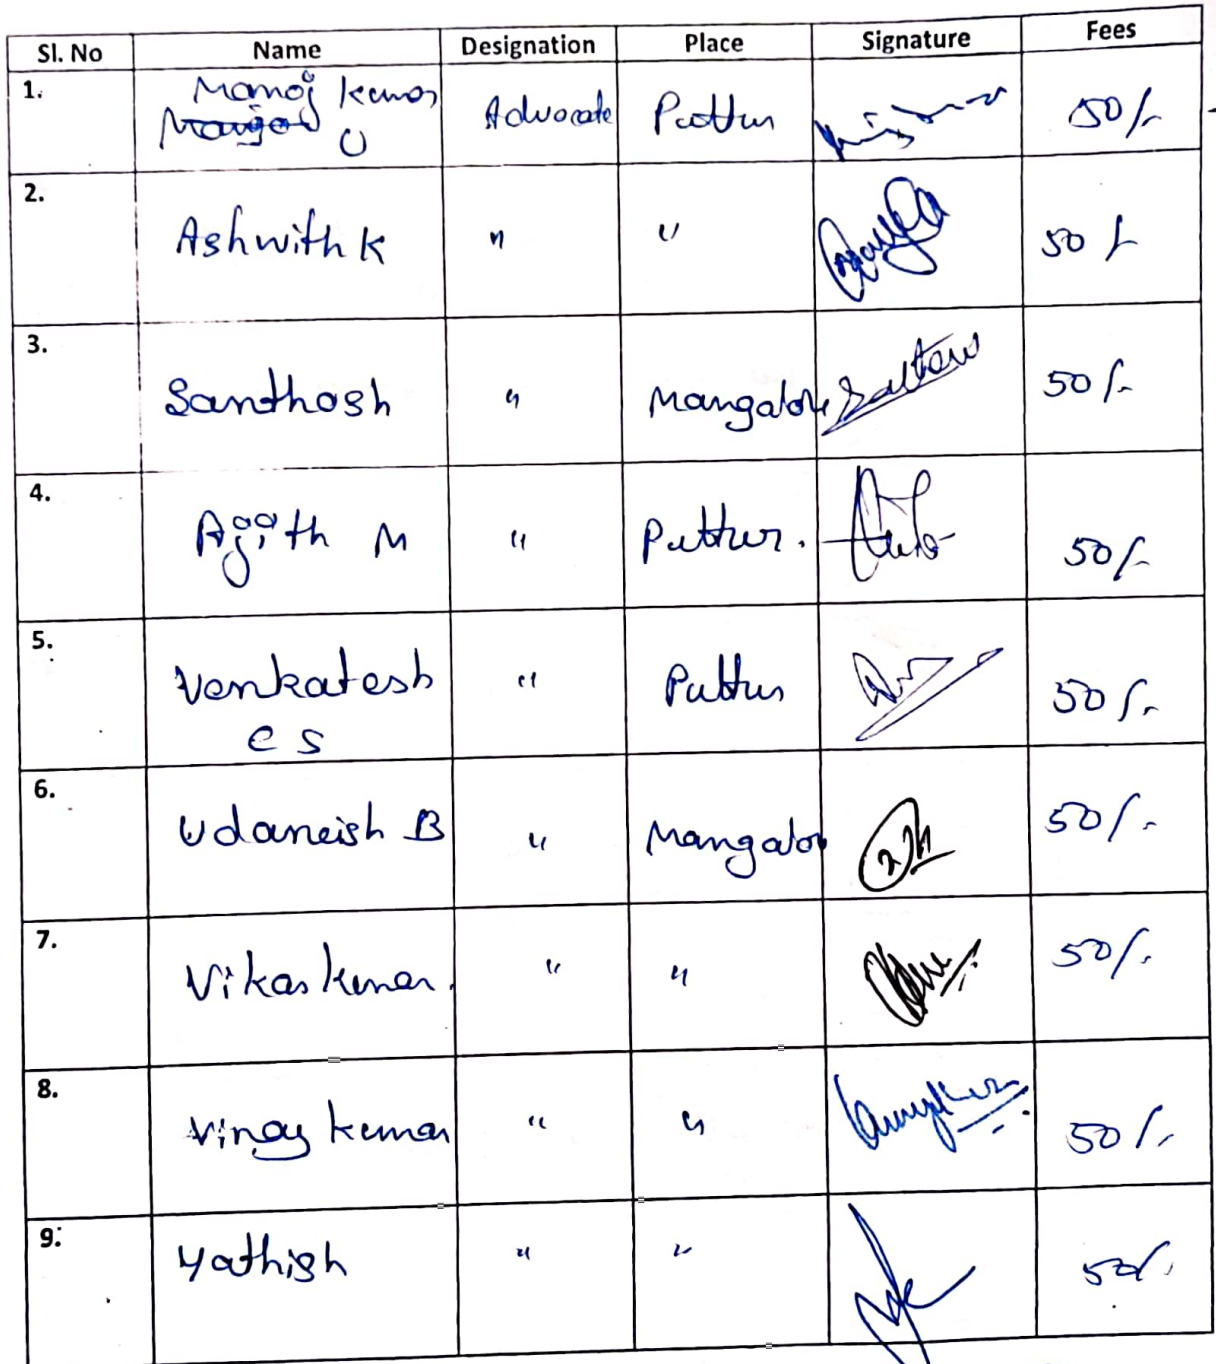 Sl. No Name Designation Place Signature Fees
1. Manoj Kumar Advocate Puttur 50/-
U
2. Ashwith K " " 50/-
3. Santhosh " Mangalore 50/-
4. Ajith M " Puttur. 50/-
5. Venkatesh " Puttur 50/-
C S
6. B " Mangalor 50/-
7. Vikas Kumar. " " 50/-
8. Vinay Kumar " " 50/-
9. Yathish " " 50/-